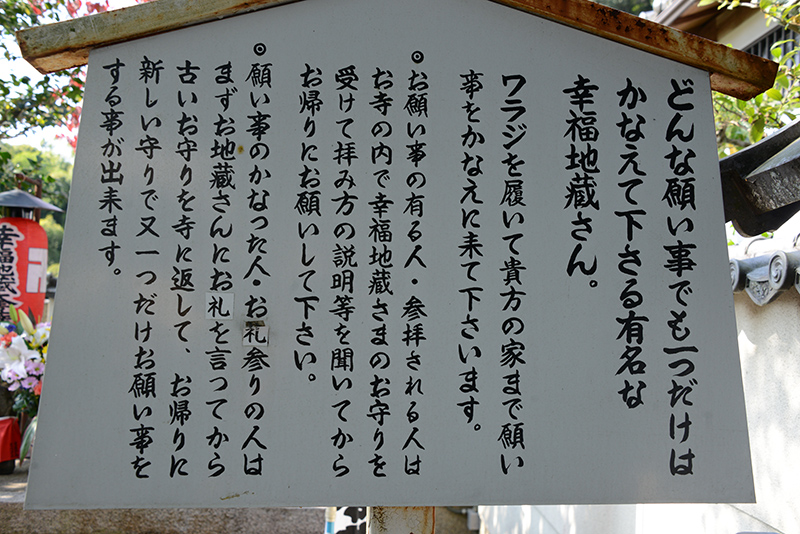 どんな願い事でも一つだけは
かなえて下さる有名な
幸福地蔵さん。
ワラジを履いて貴方の家まで願い
事をかなえに来て下さいます。
◎お願い事の有る人・参拝される人は
お寺の内で幸福地蔵さまのお守りを
受けて拝み方の説明等を聞いてから
お帰りにお願いして下さい。
◎願い事のかなった人・お礼参りの人は
まずお地蔵さんにお礼を言つてから
古いお守りを寺に返して、お帰りに
新しい守りで又一つだけお願い事を
する事が出来ます。
幸福地蔵